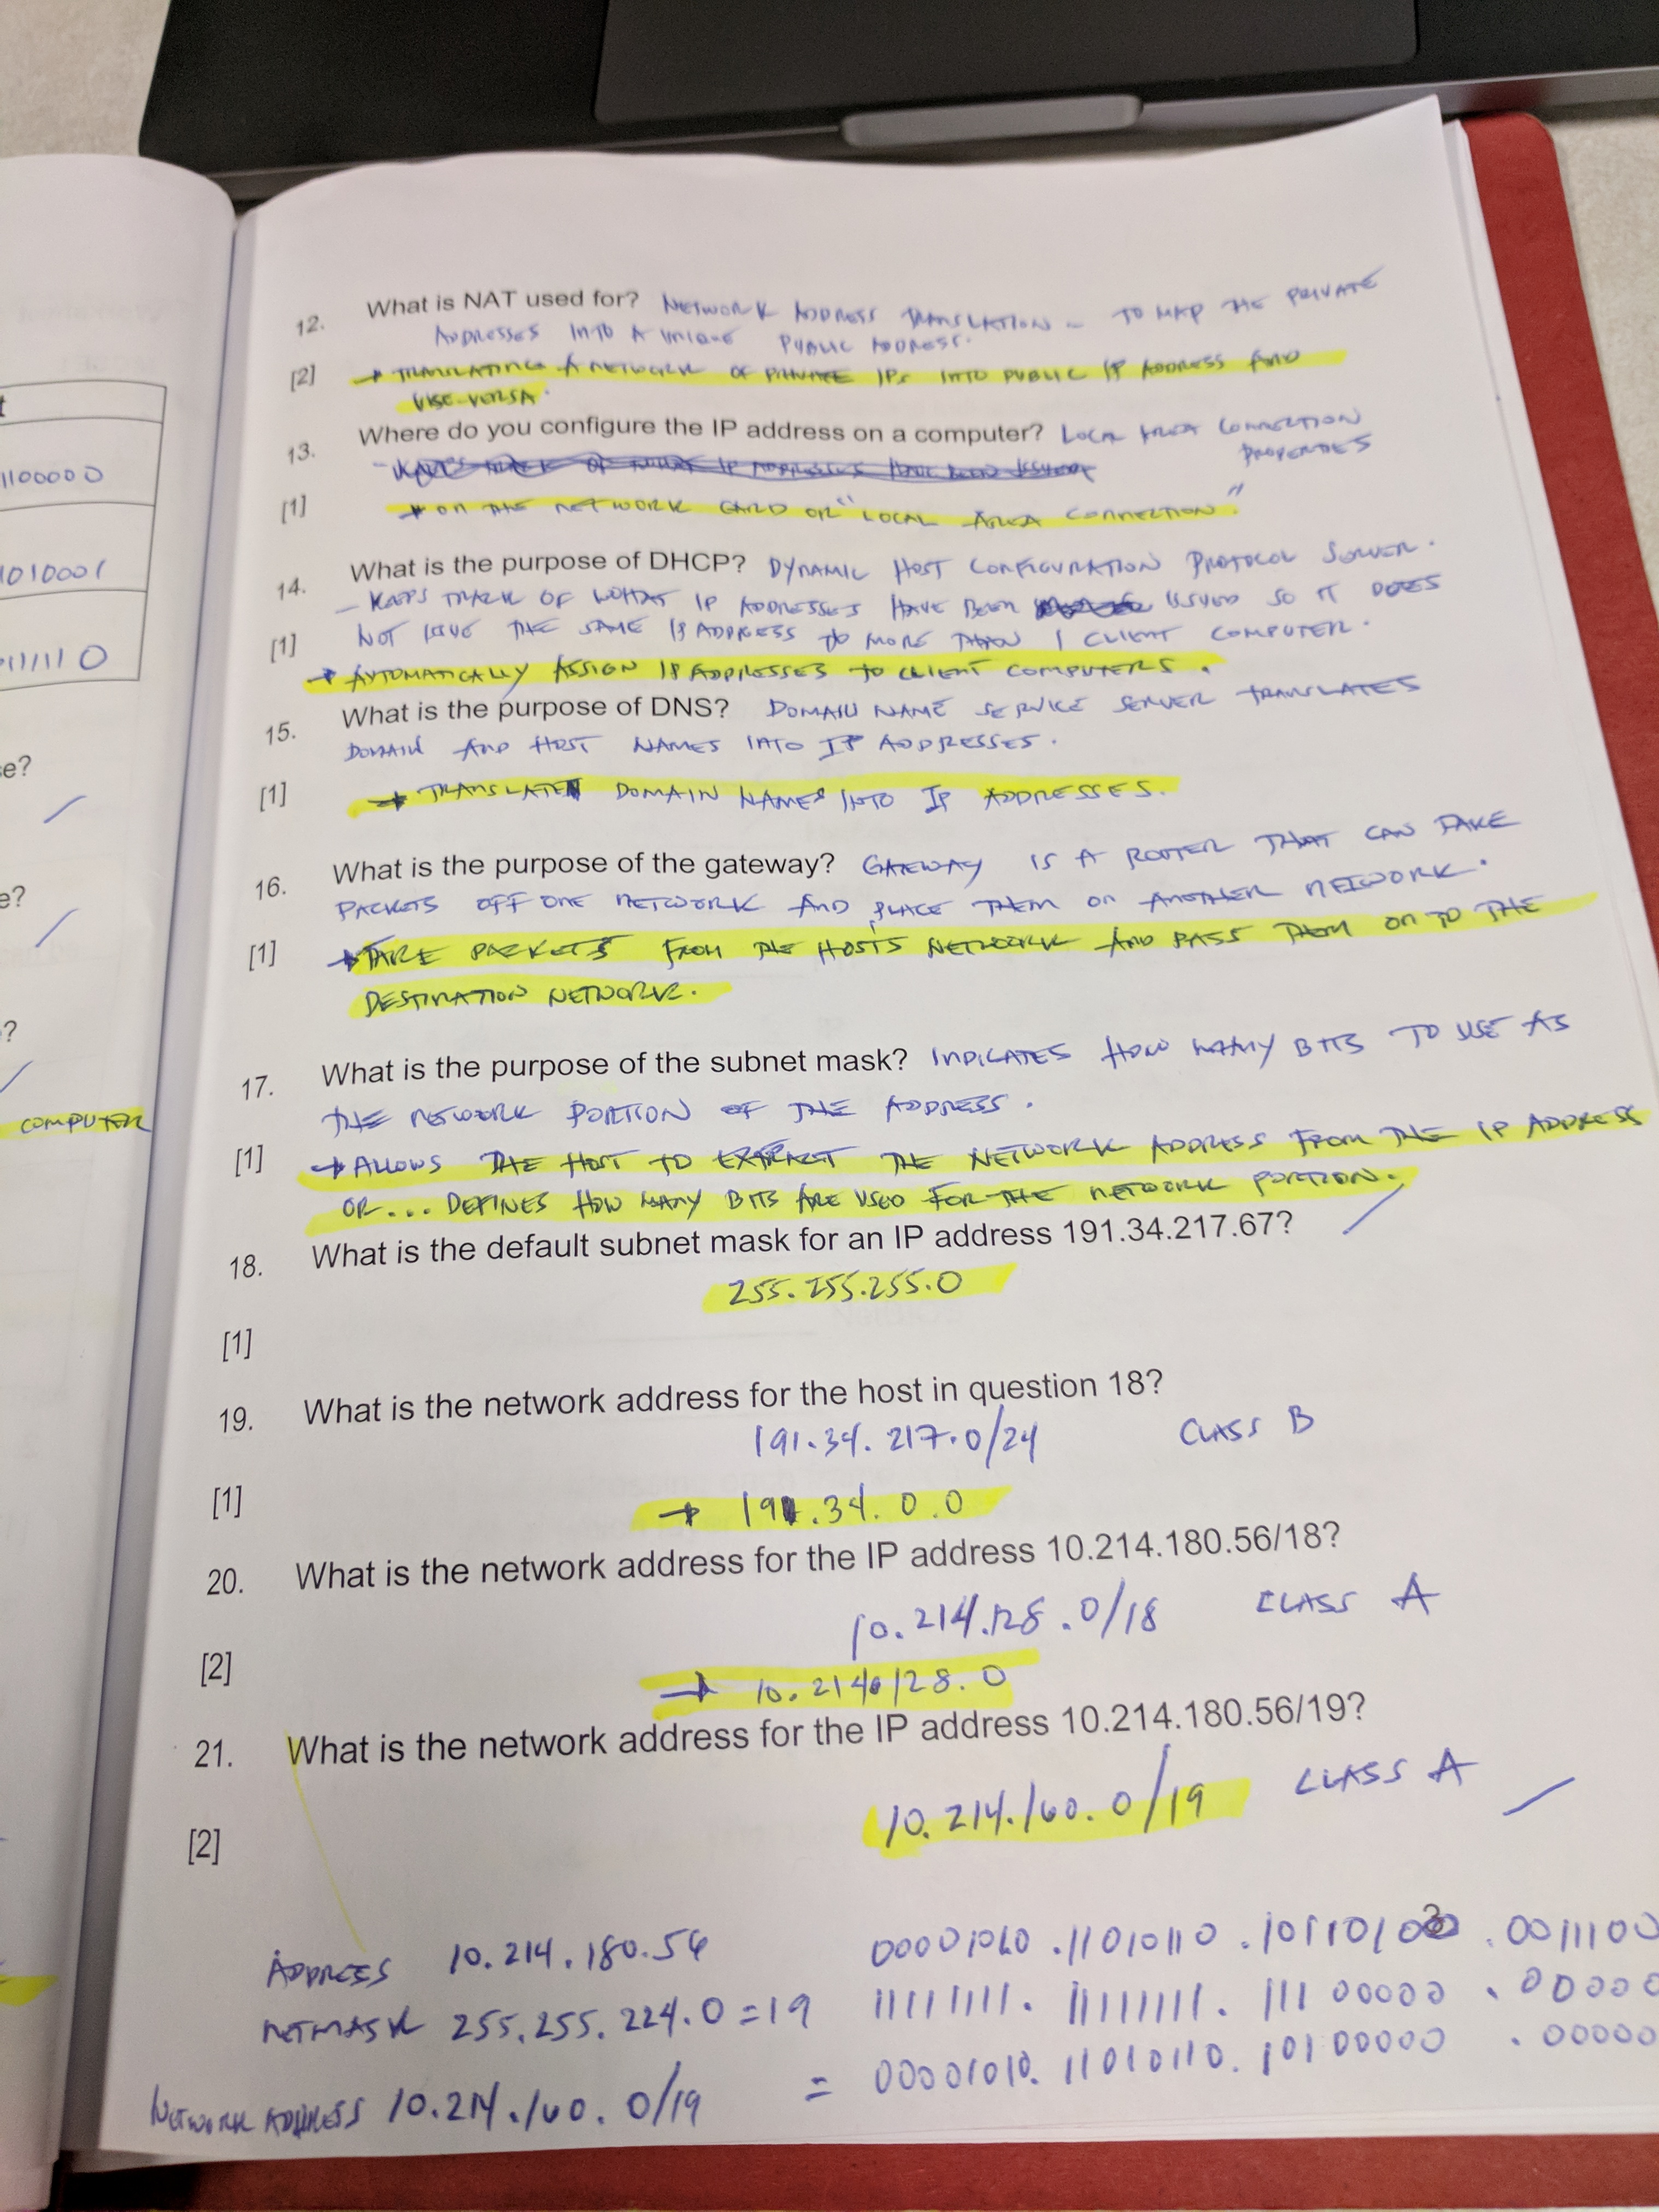 t
1100000
1010001
0111110
se?
e?
?
COMPUTER
12. What is NAT used for? NETWORK ADDRESS TRANSLATION - TO MAP THE PRIVATE
ADDRESSES INTO A UNIQUE PUBLIC ADDRESS.
[2] → TRANSLATING A NETWORK OF PRIVATE IPs INTO PUBLIC IP ADDRESS AND
VISE-VERSA.
13. Where do you configure the IP address on a computer? LOCAL AREA CONNECTION
PROPERTIES
[1] → ON THE NETWORK CARD OR "LOCAL AREA CONNECTION."
14. What is the purpose of DHCP? DYNAMIC HOST CONFIGURATION PROTOCOL SERVER.
- KEEPS TRACK OF WHAT IP ADDRESSES HAVE BEEN ISSUED SO IT DOES
[1] NOT GIVE THE SAME IP ADDRESS TO MORE THAN 1 CLIENT COMPUTER.
→ AUTOMATICALLY ASSIGN IP ADDRESSES TO CLIENT COMPUTERS.
15. What is the purpose of DNS? DOMAIN NAME SERVICE SERVER TRANSLATES
DOMAIN AND HOST NAMES INTO IP ADDRESSES.
[1] → TRANSLATE DOMAIN NAMES INTO IP ADDRESSES.
16. What is the purpose of the gateway? GATEWAY IS A ROUTER THAT CAN TAKE
PACKETS OFF ONE NETWORK AND PLACE THEM ON ANOTHER NETWORK.
[1] → TAKE PACKETS FROM THE HOST'S NETWORK AND PASS THEM ON TO THE
DESTINATION NETWORK.
17. What is the purpose of the subnet mask? INDICATES HOW MANY BITS TO USE AS
THE NETWORK PORTION OF THE ADDRESS.
[1] → ALLOWS THE HOST TO EXTRACT THE NETWORK ADDRESS FROM THE IP ADDRESS
OR... DEFINES HOW MANY BITS ARE USED FOR THE NETWORK PORTION.
18. What is the default subnet mask for an IP address 191.34.217.67?
255.255.255.0
[1]
19. What is the network address for the host in question 18?
191.34.217.0/24 CLASS B
[1] → 191.34.0.0
20. What is the network address for the IP address 10.214.180.56/18?
10.214.128.0/18 CLASS A
[2] → 10.214.128.0
21. What is the network address for the IP address 10.214.180.56/19?
10.214.160.0/19 CLASS A
[2]
3
ADDRESS 10.214.180.56 00001010.11010110.10110100.0011100
NETMASK 255.255.224.0=19 11111111.11111111.11100000.00000
NETWORK ADDRESS 10.214.160.0/19 = 00001010.11010110.10100000.00000